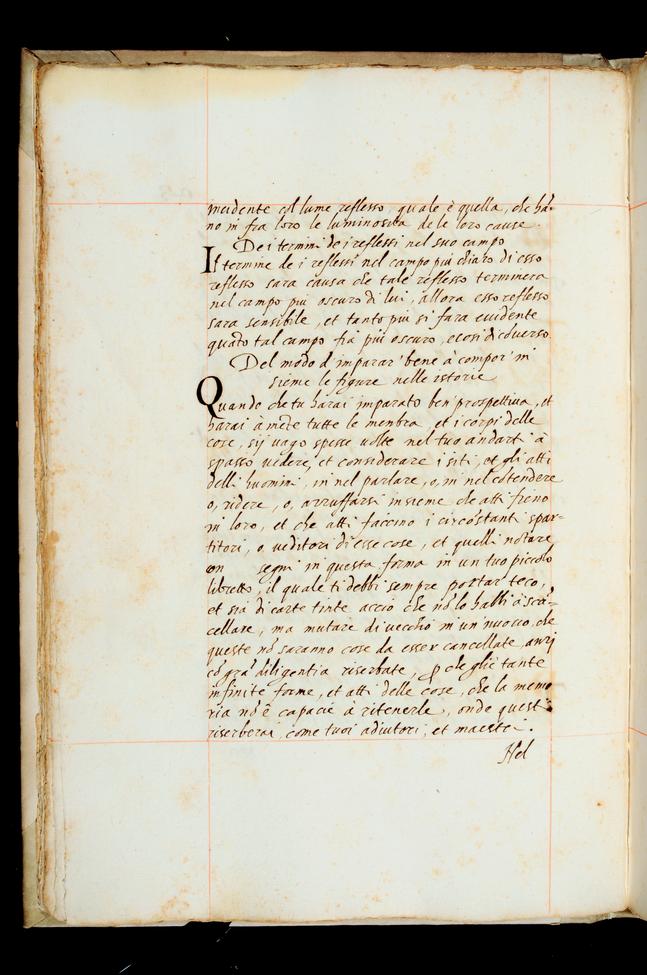 incidente col lume reflesso, quale è quella, che hā-
no in fra loro le luminosita de le loro cause
De i termini de i reflessi nel suo campo
Il termine de i reflessi nel campo più chiaro di esso
reflesso sara causa che tale reflesso terminera
nel campo più oscuro di lui, allora esso reflesso
sara sensibile, et tanto più si fara euidente
quāto tal campo fia più oscuro, ecosi di cōuerso.
Del modo d'imparar' bene à compor' in
sieme le figure nelle istorie
Quando che tu harai imparato ben' prospettiua, et
harai à mēte tutte le menbra, et i corpi delle
cose, sij uago spesse uolte nel tuo andarti à
spasso uedere, et considerare i siti, et gli atti
delli huomini, in nel parlare, o, in nel cōtendere
o, ridere, o, azzuffarsi insieme che atti fieno
in loro, et che atti faccino i circōstanti spar-
titori, o, ueditori d'esse cose, et quelli notare
con segni in questa forma in un tuo piccolo
libretto, il quale ti debbi sempre portar' teco,
et sia di carte tinte acciò che nō lo habbi à scā-
cellare, ma mutare di uecchio in un' nuouo, che
queste nō saranno cose da esser cancellate, anzi
cō grā diligentia riserbate, ꝑ che gliè tante
infinite forme, et atti delle cose, che la memo
ria nō è capacie à ritenerle, onde questi
riserberai, come tuoi adiutori, et maestri.
Hel